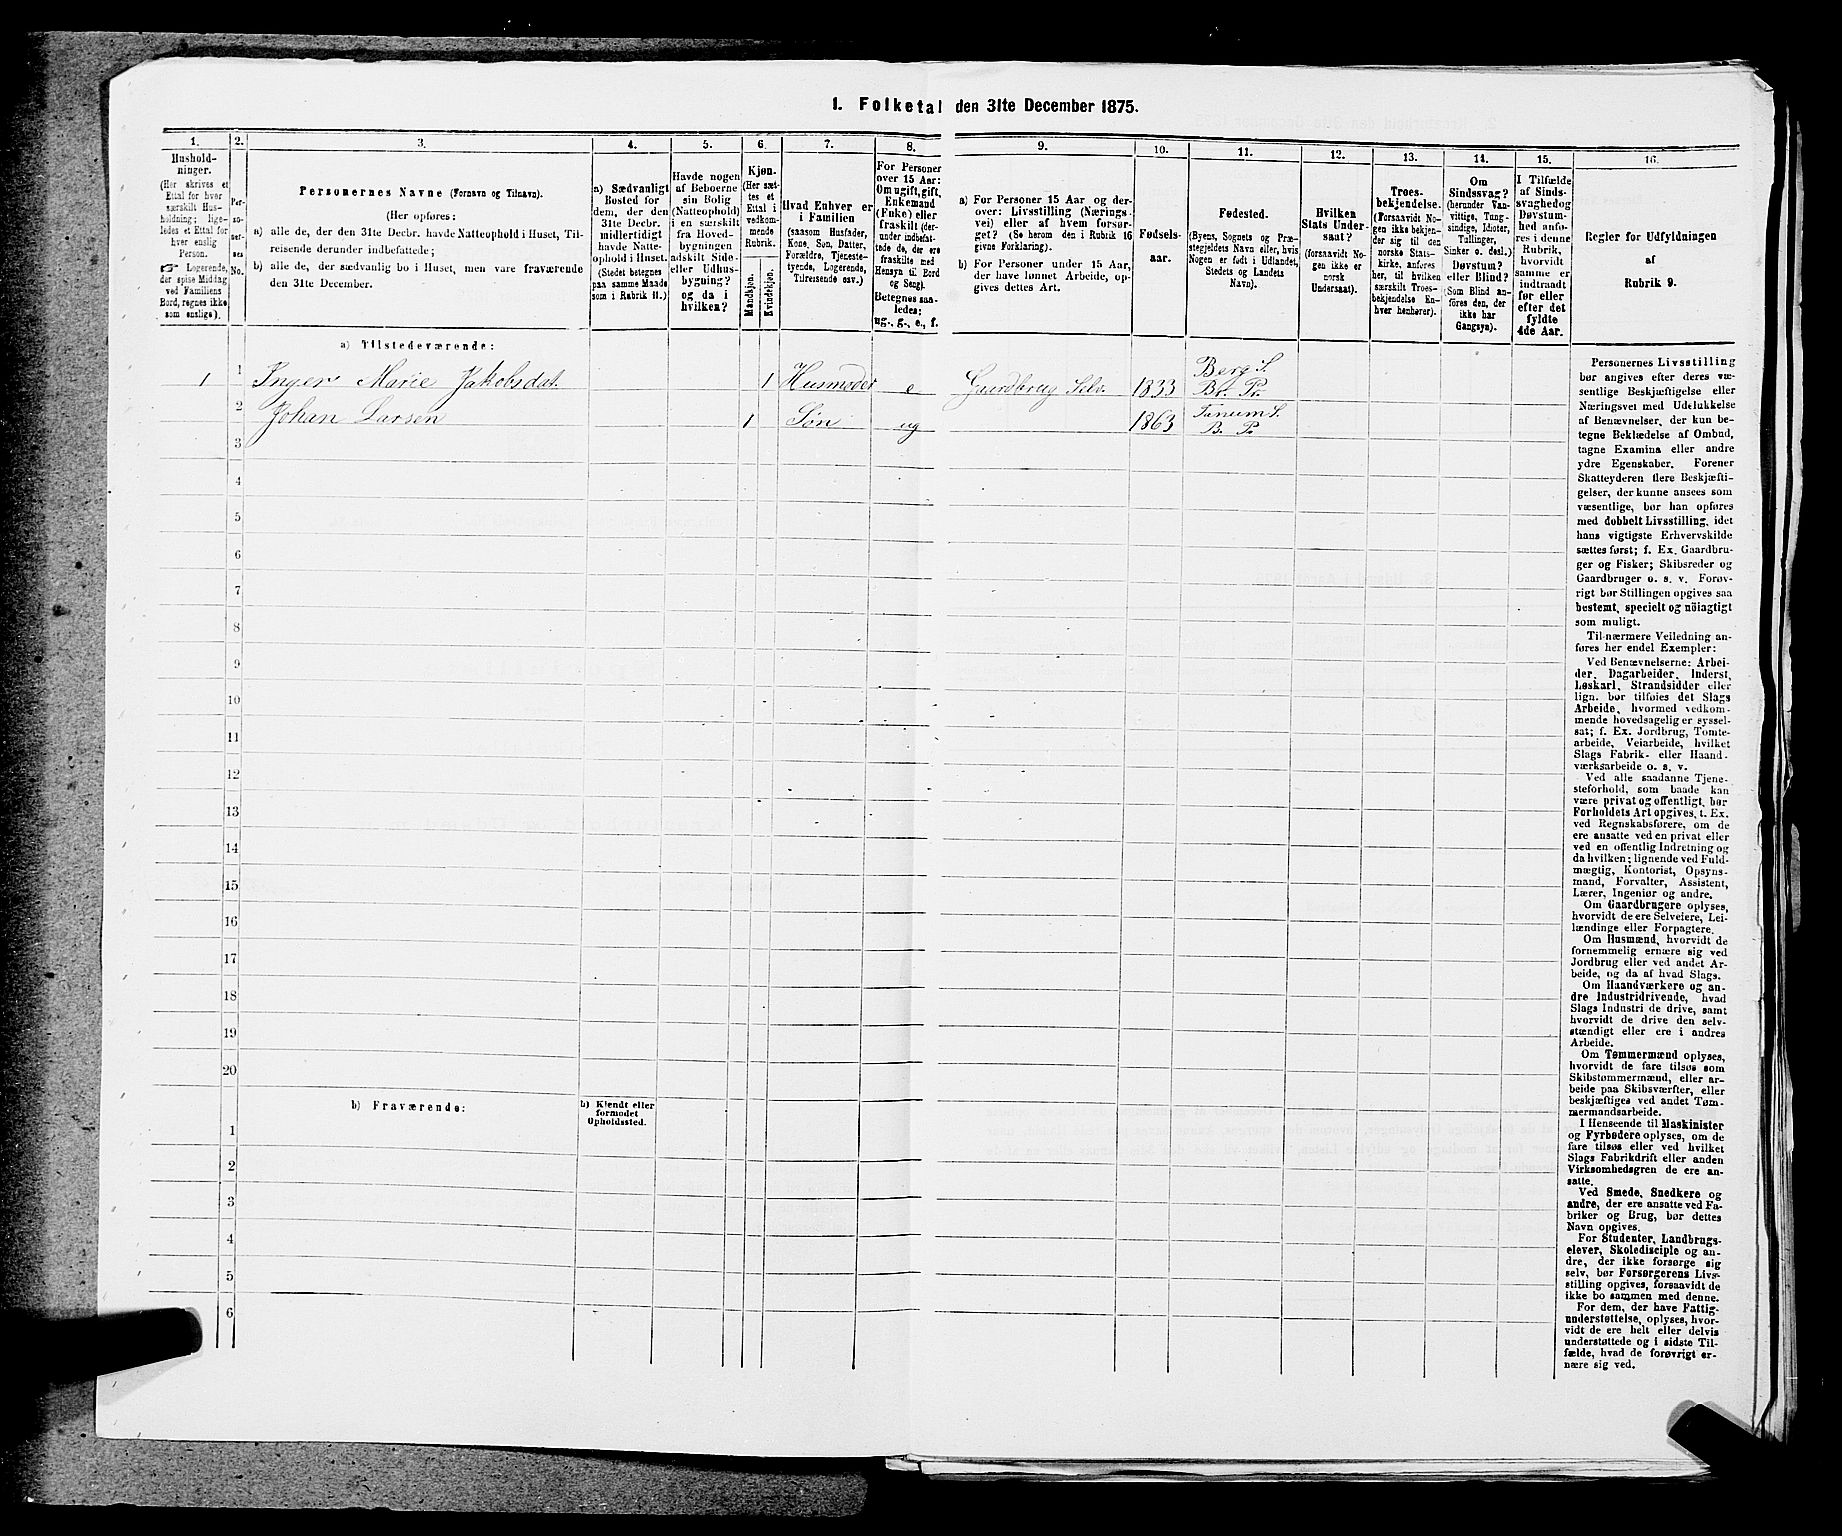 I. Folketal den 31te December 1875.
1.
Hushold-
ninger.
(Her skrives et
Ettal for hver
særskilt Hus-
holdning; lige-
ledes et Ettal for
hver enslig
Person.
☞ Logerende,
der spise Middag
ved Familiens
Bord, regnes ikke
som enslige).
2.
Per-
so-
ner-
nes
No.
3.
Personernes Navne (Fornavn og Tilnavn).
(Her opføres:
a) alle de, der den 31te Decbr. havde Natteophold i Huset, Til-
reisende derunder indbefattede;
b) alle de, der sædvanlig bo i Huset, men vare fraværende
den 31te December.
4.
a) Sædvanligt
Bosted for
dem, der den
31te Decbr.
midlertidigt
havde Natte-
ophold i Huset.
(Stedet betegnes
paa samme Maade
som i Rubrik 11.)
5.
Havde nogen
af Beboerne
sin Bolig
(Natteophold)
i en særskilt
fra Hoved-
bygningen
adskilt Side-
eller Udhus-
bygning?
og da i
hvilken?
6.
Kjøn.
(Her sæt-
tes et
Ettal i
vedkom-
mende
Rubrik.
Mandkjøn.
Kvindekjøn.
7.
Hvad Enhver er
i Familien
(saasom Husfader,
Kone, Søn, Datter,
Forældre, Tjeneste-
tyende, Logerende,
Tilreisende osv.)
8.
For Personer
over 15 Aar:
Om ugift, gift,
Enkemand
(Enke) eller
fraskilt (der-
under indbefat-
tede de, der ere
fraskilte med
Hensyn til Bord
og Seng).
Betegnes saa-
ledes:
ug., g., e., f.
9.
a) For Personer 15 Aar og der-
over: Livsstilling (Nærings-
vei) eller af hvem forsør-
get? (Se herom den i Rubrik 16
givne Forklaring).
b) For Personer under 15 Aar,
der have lønnet Arbeide, op-
gives dettes Art.
10.
Fødsels-
aar.
11.
Fødested.
(Byens, Sognets og Præ-
stegjeldets Navn eller, hvis
Nogen er født i Udlandet,
Stedets og Landets
Navn).
12.
Hvilken
Stats Under-
saat?
(forsaavidt No-
gen ikke er
norsk
Undersaat).
13.
Troes-
bekjendelse.
(Forsaavidt No-
gen ikke bekjen-
der sig til den
norske Stats-
kirke, anføres
her, til hvilken
særskilt Troes-
bekjendelse En-
hver henhører).
14.
Om
Sindssvag?
(herunder Van-
vittige, Tung-
sindige, Idioter,
Tullinger,
Sinker o. desl.).
Døvstum?
eller Blind?
(Som Blind an-
føres den, der
ikke har
Gangsyn).
15.
I Tilfælde
af Sinds-
svaghed og
Døvstum-
hed anfø-
res i denne
Rubrik,
hvorvidt
samme er
indtraadt
før eller
efter det
fyldte
4de Aar.
16.
Regler for Udfyldningen
af
Rubrik 9.
a) Tilstedeværende:
1 1 Inger Marie Jakobsdat. 1 Husmoder e Gaardbrug Selv. 1833 Berg S.
Br. Pr.
2 Johan Larsen 1 Søn ug 1863 Tanum S.
B. Pr.
3
4
5
6
7
8
9
10
11
12
13
14
15
16
17
18
19
20
b) Fraværende:
b) Kjendt eller
formodet
Opholdssted.
1
2
3
4
5
6
Personernes Livsstilling
bør angives efter deres væ-
sentlige Beskjæftigelse eller
Næringsvei med Udelukkelse
af Benævnelser, der kun be-
tegne Beklædelse af Ombud,
tagne Examina eller andre
ydre Egenskaber. Forener
Skatteyderen flere Beskjæfti-
gelser, der kunne ansees som
væsentlige, bør han opføres
med dobbelt Livsstilling, idet
hans vigtigste Erhvervskilde
sættes først; f. Ex. Gaardbru-
ger og Fisker; Skibsreder og
Gaardbruger o. s. v. Forøv-
rigt bør Stillingen opgives saa
bestemt, specielt og nöiagtigt
som muligt.
Til nærmere Veiledning an-
føres her endel Exempler:
Ved Benævnelserne: Arbei-
der, Dagarbeider, Inderst,
Løskarl, Strandsidder eller
lign. bør tilføies det Slags
Arbeide, hvormed vedkom-
mende hovedsagelig er syssel-
sat; f. Ex. Jordbrug, Tomte-
arbeide, Veiarbeide, hvilket
Slags Fabrik- eller Haand-
værksarbeide o. s. v.
Ved alle saadanne Tjene-
steforhold, som baade kan
være privat og offentligt, bør
Forholdets Art opgives, t. Ex.
ved Regnskabsførere, om de
ere ansatte ved en privat eller
ved en offentlig Indretning og
da hvilken; lignende ved Fuld-
mægtig, Kontorist, Opsyns-
mand, Forvalter, Assistent,
Lærer, Ingeniør og andre.
Om Gaardbrugere oplyses,
hvorvidt de ere Selveiere, Lei-
lændinge eller Forpagtere.
Om Husmænd, hvorvidt de
fornemmelig ernære sig ved
Jordbrug eller ved andet Ar-
beide, og da af hvad Slags.
Om Haandværkere og an-
dre Industridrivende, hvad
Slags Industri de drive, samt
hvorvidt de drive den selv-
stændigt eller ere i andres
Arbeide.
Om Tømmermænd oplyses,
hvorvidt de fare tilsøs som
Skibstømmermænd, eller ar-
beide paa Skibsværfter, eller
beskjæftiges ved andet Tøm-
mermandsarbeide.
I Henseende til Maskinister
og Fyrbødere oplyses, om de
fare tilsøs eller ved hvilket
Slags Fabrikdrift eller anden
Virksomhedsgren de ere an-
satte.
Ved Smede, Snedkere og
andre, der ere ansatte ved Fa-
briker og Brug, bør dettes
Navn opgives.
For Studenter, Landbrugs-
elever, Skoledisciple og an-
dre, der ikke forsørge sig
selv, bør Forsørgerens Livs-
stilling opgives, forsaavidt de
ikke bo sammen med denne.
For dem, der have Fattig-
understøttelse, oplyses, hvor-
vidt de ere helt eller delvis
understøttede og i sidste Til-
fælde, hvad de forøvrigt er-
nære sig ved.